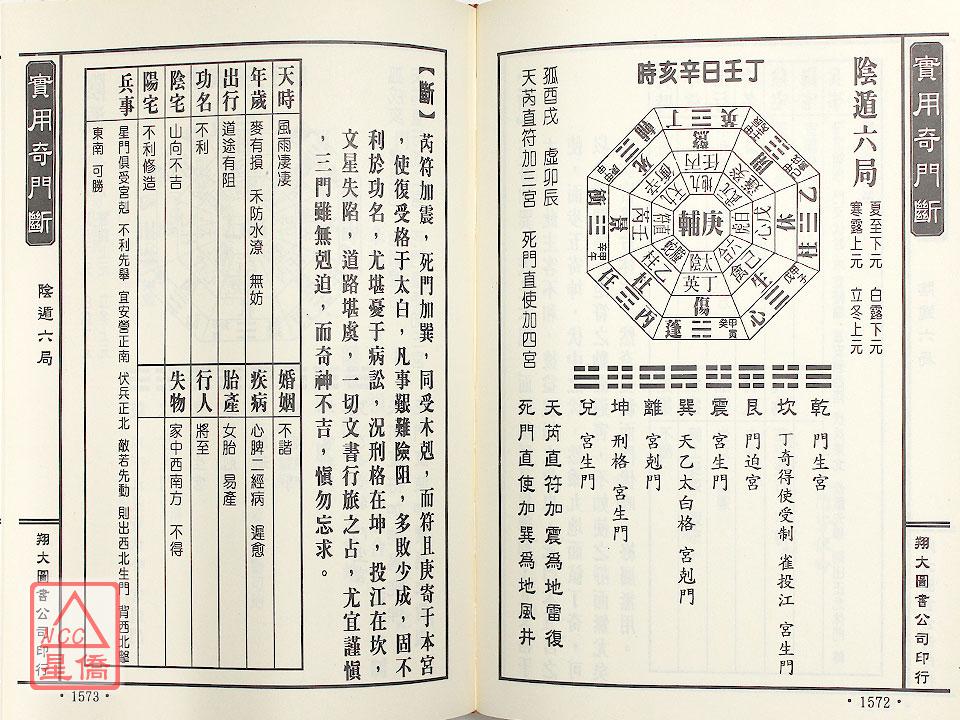 實用奇門斷
翔大圖書公司印行
陰遁六局
夏至下元　白露下元
寒露上元　立冬上元
丁壬日辛亥時
孤酉戌　虛卯辰
天芮直符加三宮　死門直使加四宮
輔庚
太陰
丁英
傷
蓬
生
心
休
柱
乙
任
丙
景
死
驚
開
乾　門生宮
坎　丁奇得使受制　雀投江　宮生門
艮　門迫宮
震　宮生門
巽　天乙太白格　宮剋門
離　宮剋門
坤　刑格　宮生門
兌　宮生門
天芮直符加震為地雷復
死門直使加巽為地風井
·1572·
【斷】芮符加震，死門加巽，同受木剋，而符且庚寄于本宮
，使復受格于太白，凡事艱難險阻，多敗少成，固不
利於功名，尤堪憂于病訟，況刑格在坤，投江在坎，
文星失陷，道路堪虞，一切文書行旅之占，尤宜謹慎
，三門雖無剋迫，而奇神不吉，慎勿忘求。
天時　風雨凄凄
婚姻　不諧
年歲　麥有損　禾防水潦　無妨
疾病　心脾二經病　遲愈
出行　道途有阻
胎產　女胎　易產
功名　不利
行人　將至
陰宅　山向不吉
失物　家中西南方　不得
陽宅　不利修造
兵事　星門俱受宮剋　不利先舉　宜安營正南　伏兵正北　敵若先動　則出西北生門　背西北擊
東南　可勝
實用奇門斷
陰遁六局
翔大圖書公司印行
·1573·
NCC
星僑